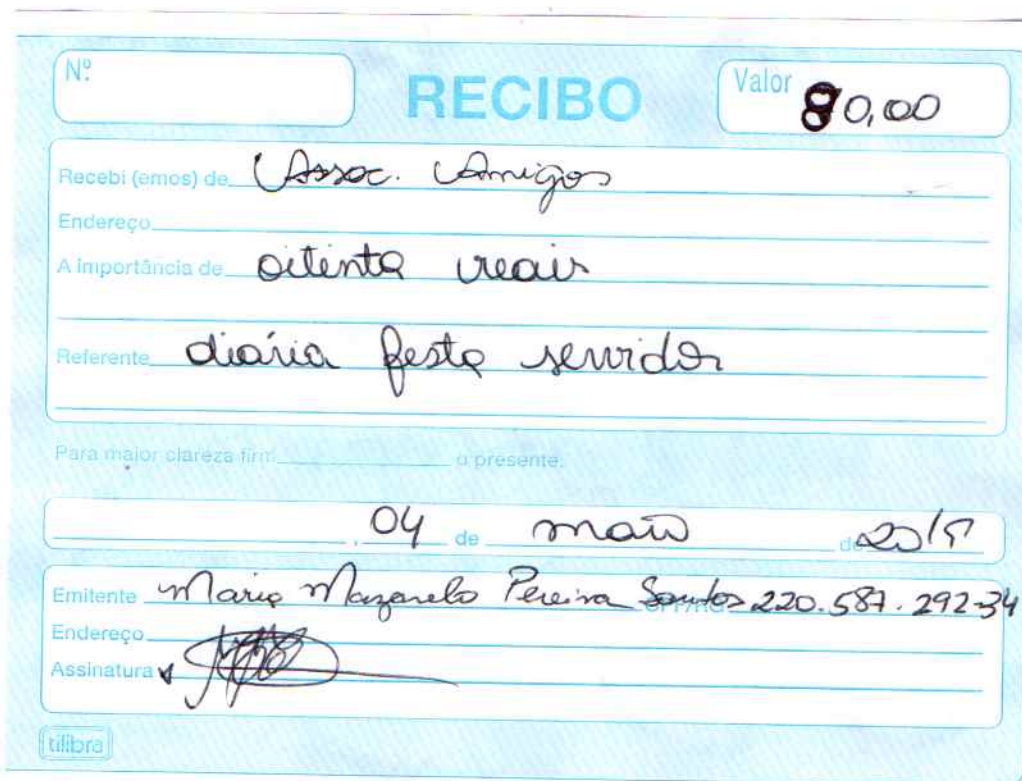 Nº
RECIBO
Valor 80,00
Recebi (emos) de Assoc. Amigos
Endereço
A importância de oitenta reais
Referente diária festa servidor
Para maior clareza firm o presente.
, 04 de maio de
Emitente Maria Mazarelo Pereira Santos CPF/RG 220.587.292-34
Endereço
Assinatura
tilibra